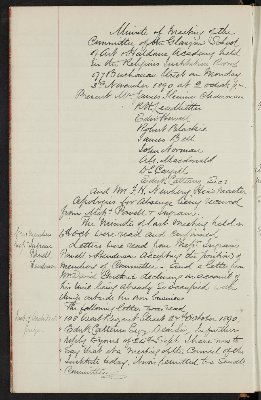 Minute of Meeting of the
Committee of the Glasgow School
of Art & Haldane Academy held
in the Religious Institution Rooms
177 Buchanan Street on Monday
3rd November 1890 at 2 o'clock p.m.
Present Mr James Fleming Chairman
R. H. Leadbetter
Edwin
Robert Blackie
James Bell
John Norman
Alx. Macdonald
Edwd Catterns Secy
And Mr F. H. Newbery Head Master
Apologies for Absence being received
from Messrs Powell & Ingram.
The Minute of last meeting held on
were read and confirmed
New Members
Messrs Ingram
Powell
Henderson
Letters were read from Messrs Ingram
Powell & Henderson accepting the position of
members of Committee - and a letter from
declining on account of
his time being already so occupied with
things outside his own business
The following letter was read
195 West Regent Street 24th October 1890
Edwd Catterns Esqr Dear Sir, In further
reply to yours of Sept I have now to
say that at a Meeting of the Council of the
Institute today, I was permitted to
Committee